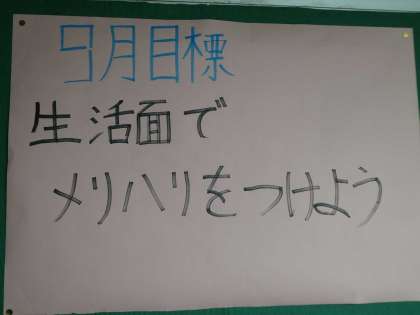 5月目標
生活面で
メリハリをつけよう